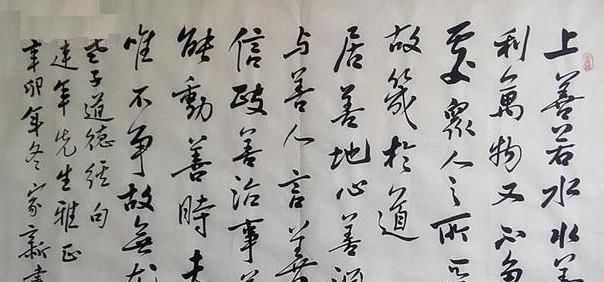 上善若水水善
利萬物又不爭
處眾人之所惡
故幾於道
居善地心善淵
与善人言善
信政善治事善
能動善時夫
唯不爭故無尤
老子道德經句
建年先生雅正
辛卯年冬家新書